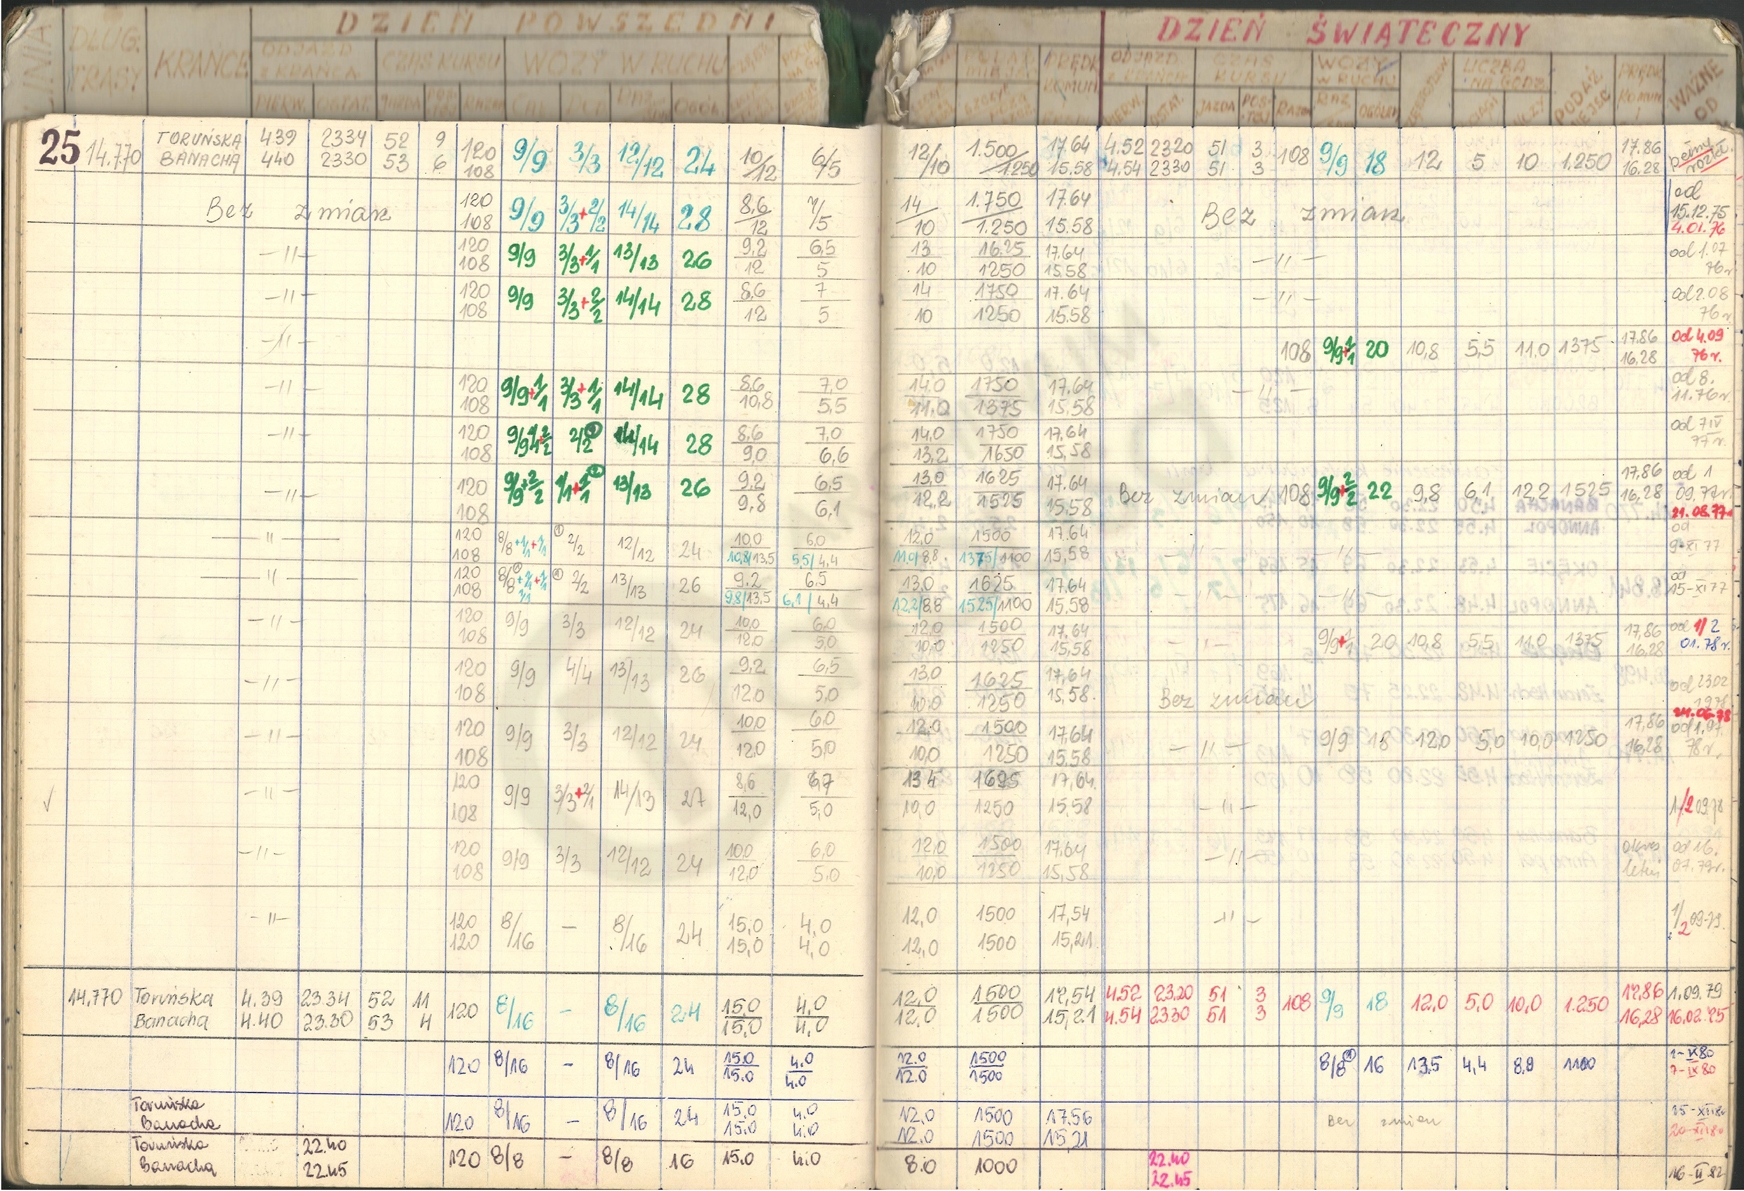 DZIEŃ POWSZEDNI
DZIEŃ ŚWIĄTECZNY
LINIA DŁUG. TRASY KRAŃCE ODJAZD Z KRAŃCA CZAS KURSU WOZY W RUCHU
PIERW. OSTAT. JAZDA
PRĘDK. KOMUN. ODJAZD Z KRAŃCA CZAS KURSU WOZY W RUCHU LICZBA NA GODZ. PODAŻ MIEJSC PRĘDK. KOMUN. WAŻNE OD
25 14.770 TORUŃSKA 439 2334 52 9 120 9/9 3/3 12/12 24 10/12 6/5 12/10 1.500/1250 17.64 4.52 2320 51 3 108 9/9 18 12 5 10 1.250 17.86
BANACHA 440 2330 53 6 108 15.58 4.54 2330 51 3 16.28
Bez zmian 120 9/9 3/3+2/2 14/14 28 8,6 7/5 14 1.750 17.64 Bez zmian od 15.12.75
108 12 10 1.250 15.58 4.01.76
-11- 120 9/9 3/3+1/1 13/13 26 9,2 6,5 13 1625 17,64 -11- od 1.07
108 12 5 10 1250 15.58 76r
-11- 120 9/9 3/3+2/2 14/14 28 8,6 7 14 1750 17.64 -11- od 2.08
108 12 5 10 1250 15.58 76r
-11- 108 9/9+1/1 20 10,8 5,5 11,0 1375 17,86 od 4.09
16.28 76r.
-11- 120 9/9+1/1 3/3+1/1 14/14 28 8,6 7,0 14,0 1750 17.64 -11- od 8.
108 10,8 5,5 11,0 1375 15,58 11.76r
-11- 120 2/2 14/14 28 8,6 7,0 14,0 1750 17,64 od 7 IV
108 9,0 6,6 13,2 1650 15,58 77r.
-11- 120 9/9+2/2 1/1+1/1 13/13 26 9,2 6,5 13,0 1625 17,64 Bez zmian 108 9/9+2/2 22 9,8 6,1 12,2 1525 17,86 od 1
108 9,8 6,1 12,2 1525 15,58 16,28 09.77r.
21.08.77
-11- 120 8/8+1/1+1/1 2/2 12/12 24 10,0 6,0 12,0 1500 17.64 -11- od
108 10,8/13,5 5,5/4,4 11,0/8,8 1375/1100 15,58 9-XI 77
-11- 120 2/2 13/13 26 9,2 6,5 13,0 1625 17,64 -11- od
108 9,8/13,5 6,1/4,4 12,2/8,8 1525/1100 15.58 15-XI 77
-11- 120 9/9 3/3 12/12 24 10,0 6,0 12,0 1500 17,64 -11- 9/9+1/1 20 10,8 5,5 11,0 1375 17,86 od 1/2
108 12,0 5,0 10,0 1250 15,58 16.28 01.78r.
-11- 120 9/9 4/4 13/13 26 9,2 6,5 13,0 1625 17,64 Bez zmian od 2302
108 12,0 5,0 10,0 1250 15,58. 1978
-11- 120 9/9 3/3 12/12 24 10,0 6,0 12,0 1500 17,64 -11- 9/9 18 12,0 5,0 10,0 1250 17,86 24.06.78
108 12,0 5,0 10,0 1250 15,58 16,28 od 1.07. 78r.
√ -11- 120 9/9 3/3+2/1 14/13 27 8,6 6,7 13,4 1625 17,64 -11-
108 12,0 5,0 10,0 1250 15,58 1/2 09.78
-11- 120 9/9 3/3 12/12 24 10,0 6,0 12,0 1500 17,64 -11- okres od 16.
108 12,0 5,0 10,0 1250 15,58 letni 07.79r.
-11- 120 8/16 - 8/16 24 15,0 4,0 12,0 1500 17,54 -11- 1/2 09.79.
120 15,0 4,0 12,0 1500 15,21
14,770 Toruńska 4.39 23.34 52 11 120 8/16 - 8/16 24 15,0 4,0 12,0 1500 17,54 4.52 23.20 51 3 108 9/9 18 12,0 5,0 10,0 1.250 17,86 1.09.79
Banacha 4.40 23.30 53 4 15,0 4,0 12,0 1500 15,21 4.54 2330 51 3 16,28
120 8/16 - 8/16 24 15.0 4.0 12.0 1500 8/8 16 13,5 4,4 8,8 1100 1-IX 80
15.0 4.0 12.0 1500 7-IX 80
Toruńska 120 8/16 - 8/16 24 15.0 4.0 12,0 1500 17.56 Bez zmian 15-XI 80
Banacha 15.0 4.0 12,0 1500 15,21 20-XII 80
Toruńska 22.40 120 8/8 - 8/8 16 15.0 4.0 8.0 1000 22.40
Banacha 22.45 22.45 16-II 82